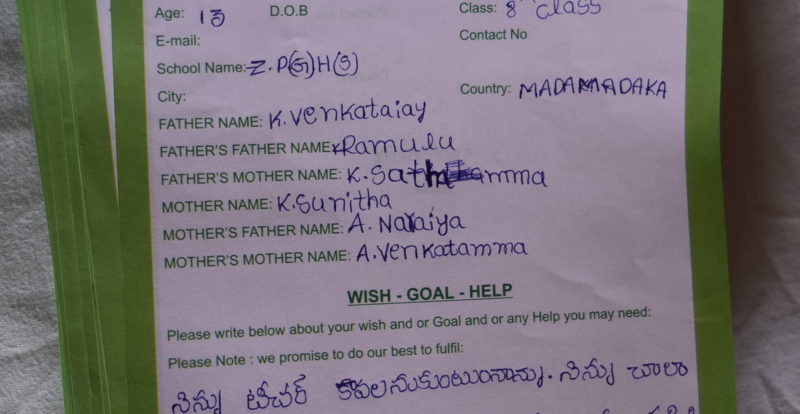 Age: 13 D.O.B Class: 8th Class
E-mail: Contact No
School Name: Z.P(G)H(S)
City: Country: MADAMADAKA
FATHER NAME: K.Venkataiay
FATHER'S FATHER NAME: K Ramulu
FATHER'S MOTHER NAME: K.Sathamma
MOTHER NAME: K.Sunitha
MOTHER'S FATHER NAME: A. Naraiya
MOTHER'S MOTHER NAME: A.Venkatamma
WISH - GOAL - HELP
Please write below about your wish and or Goal and or any Help you may need:
Please Note : we promise to do our best to fulfil:
నిన్ను టీచర్ కావలనుకుంటుంనాన్ను. నిన్ను చాలా